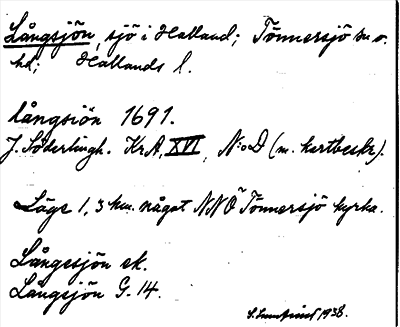 Långsjön, sjö i Halland; Tönnersjö sn o.
hd; Hallands l.
långsiön 1691.
J. Söderlingh. KrA, XVI, N:o D (m. kartbeskr).
Läge 1,3 km. något NNÖ Tönnersjö kyrka.
Långsjön ek.
Långsjön G. 14.
1938.